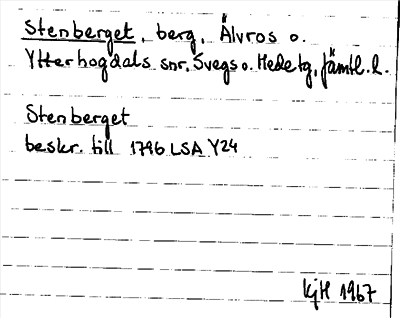 Stenberget, berg, Älvros o.
Ytterhogdals snr, Svegs o. Hede tg, Jämtl. l.
Stenberget
beskr. till 1796 LSA Y24
KjH 1967